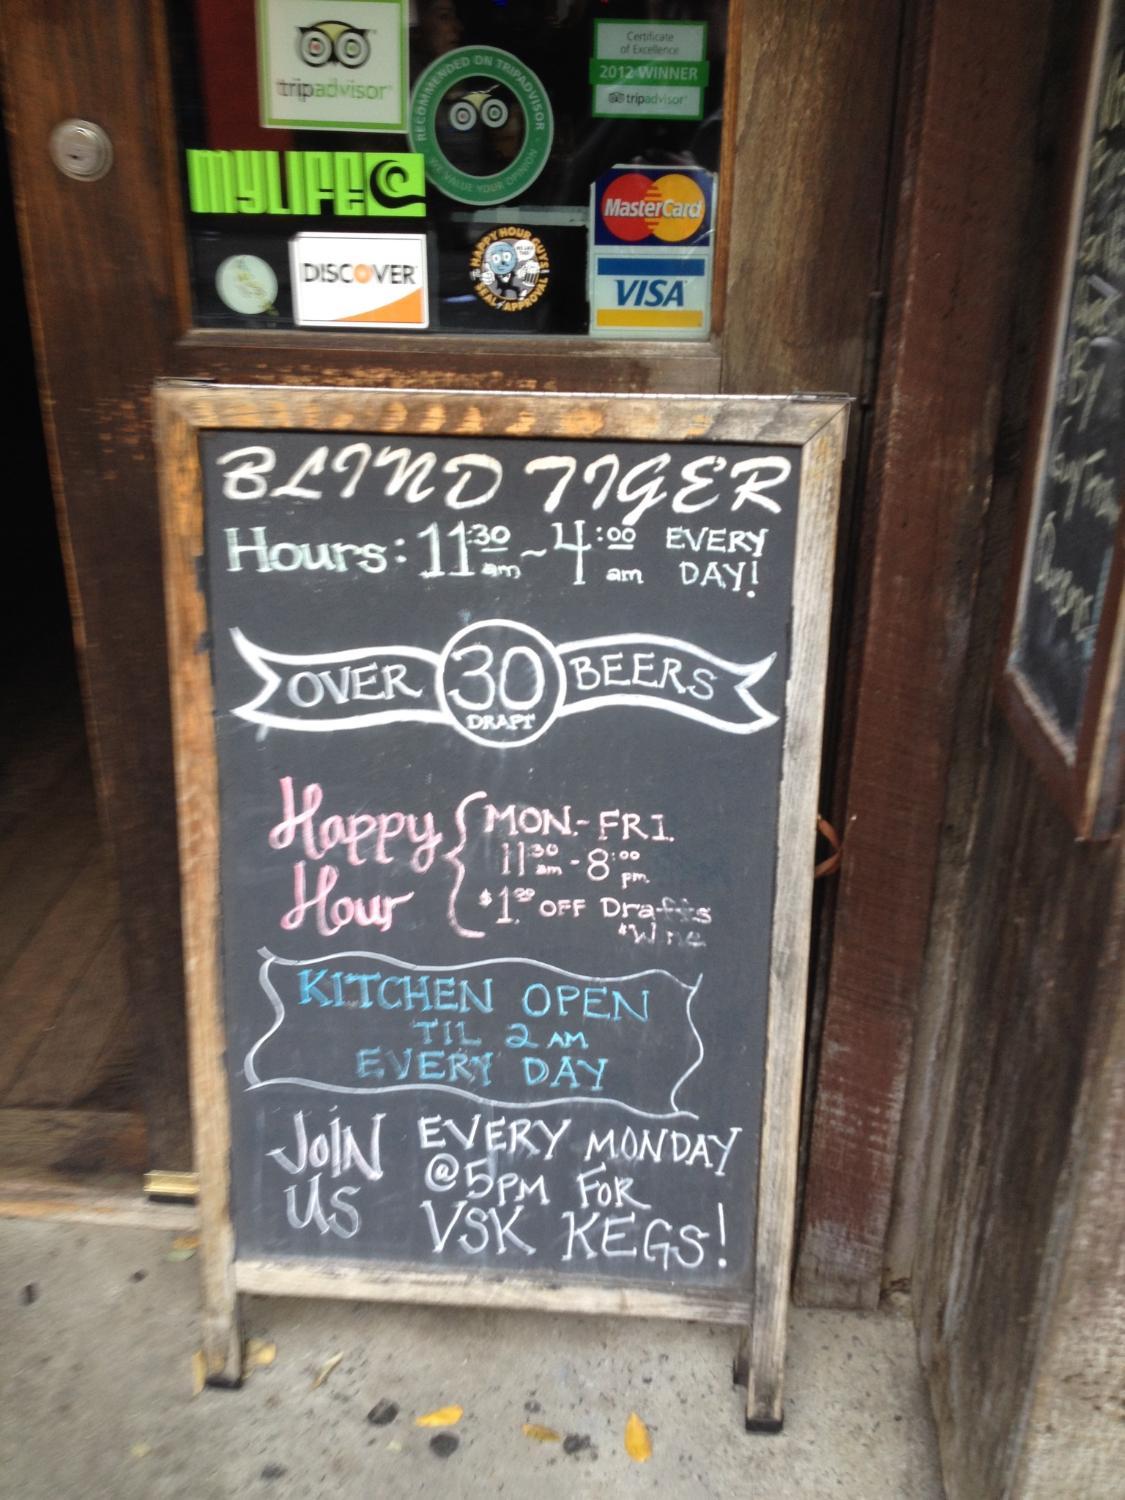 tripadvisor
RECOMMENDED ON TRIPADVISOR
WE VALUE YOUR OPINION
Certificate
of Excellence
2012 WINNER
tripadvisor
MYLIFE
MasterCard
DISCOVER
HAPPY HOUR GUYS
SEAL OF APPROVAL
VISA
BLIND TIGER
Hours: 11:30 am ~ 4:00 am EVERY DAY!
OVER 30 DRAFT BEERS
Happy Hour
MON.-FRI.
11:30 am - 8:00 pm
$1.00 OFF Drafts
& Wine
KITCHEN OPEN
TIL 2 AM
EVERY DAY
JOIN US
EVERY MONDAY
@5PM FOR
VSK KEGS!